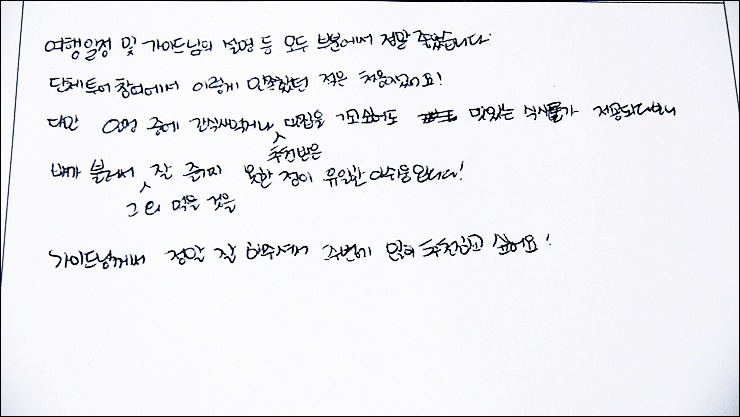 여행일정 및 가이드님의 설명 등 모두 부분에서 정말 좋았습니다.
단체투어 참여에서 이렇게 만족했던 적은 처음이었어요!
다만 여행 중에 간식사먹거나 맛집을 가고싶어도 맛있는 식사가 제공되다보니
추천받은
배가 불러서 잘 즐기지 못한 점이 유일한 아쉬움입니다!
그 외 먹을 것을
가이드님께서 정말 잘 해주셔서 주변에 많이 추천하고 싶어요!